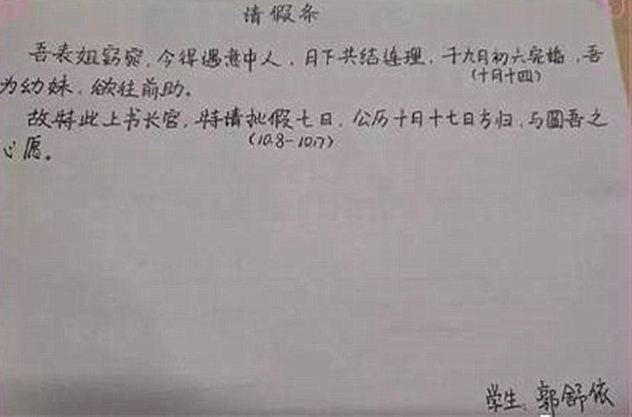 请假条
吾表姐窈窕，今得遇意中人，月下共结连理，于九月初六完婚，吾
(十月十四)
为幼妹，欲往前助。
故特此上书长官，特请批假七日，公历十月十七日方归，与圆吾之
(10.8-10.17)
心愿。
学生：郭舒依